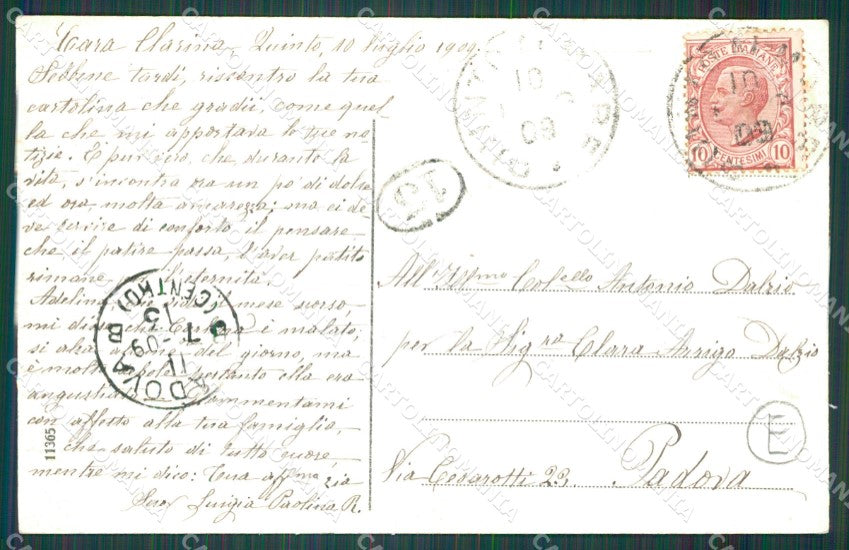 Cara Clarina, Quinto, 10 luglio 1909.
Sebbene tardi, riscontro la tua
cartolina che gradii, come quel
la che mi apportava le tue no
tizie. E pur vero, che durante la
vita, s'incontra ora un po' di dolce
ed ora, molta amarezza; ma ci de
ve servire di conforto il pensare
che il patire passa, l'aver patito
rimane per l'eternità.
Adelina mese scorso,
mi disse che è malato,
si alza del giorno, ma
è molto pertanto ella era
angustia commentami
con affetto alla tua famiglia,
che saluto di tutto cuore,
mentre mi dico: Tua aff.ma zia
Suor Luigia Paolina R.
11365
POSTE ITALIANE
10 CENTESIMI 10
10
09
10
09
15
PADOVA B (CENTRO)
15
7
11 - 09
All' Ill.mo Col.ello Antonio Dalzio
per la Sig.ra Clara Arrigo Dalzio
Padova
Via Cesarotti 23.
E
CARTOLINOMANIA